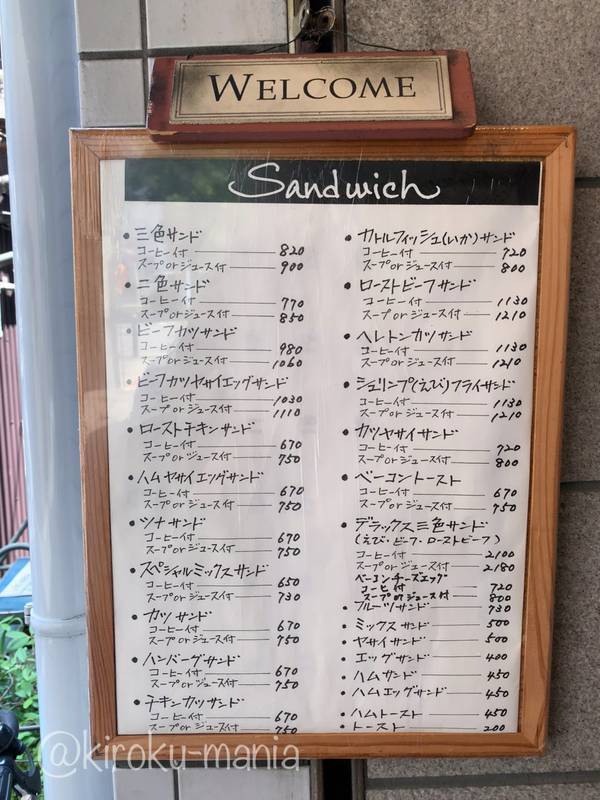 WELCOME
Sandwich
• 三色サンド
コーヒー付 820
スープorジュース付 900
• 二色サンド
コーヒー付 770
スープorジュース付 850
• ビーフカツサンド
コーヒー付 980
スープorジュース付 1060
• ビーフカツヤサイエッグサンド
コーヒー付 1030
スープorジュース付 1110
• ローストチキンサンド
コーヒー付 670
スープorジュース付 750
• ハムヤサイエッグサンド
コーヒー付 670
スープorジュース付 750
• ツナサンド
コーヒー付 670
スープorジュース付 750
• スペシャルミックスサンド
コーヒー付 650
スープorジュース付 730
• カツサンド
コーヒー付 670
スープorジュース付 750
• ハンバーグサンド
コーヒー付 670
スープorジュース付 750
• チキンカツサンド
コーヒー付 670
スープorジュース付 750
• カトルフィッシュ(いか)サンド
コーヒー付 720
スープorジュース付 800
• ローストビーフサンド
コーヒー付 1130
スープorジュース付 1210
• ヘレトンカツサンド
コーヒー付 1130
スープorジュース付 1210
• シュリンプ(えび)フライサンド
コーヒー付 1130
スープorジュース付 1210
• カツヤサイサンド
コーヒー付 720
スープorジュース付 800
• ベーコントースト
コーヒー付 670
スープorジュース付 750
• デラックス三色サンド
(えび・ビーフ・ローストビーフ)
コーヒー付 2100
スープorジュース付 2180
ベーコンチーズエッグ
コーヒ付 720
スープorジュース付 800
• フルーツサンド 730
• ミックスサンド 500
• ヤサイサンド 500
• エッグサンド 400
• ハムサンド 450
• ハムエッグサンド 450
• ハムトースト 450
• トースト 200
@kiroku-mania